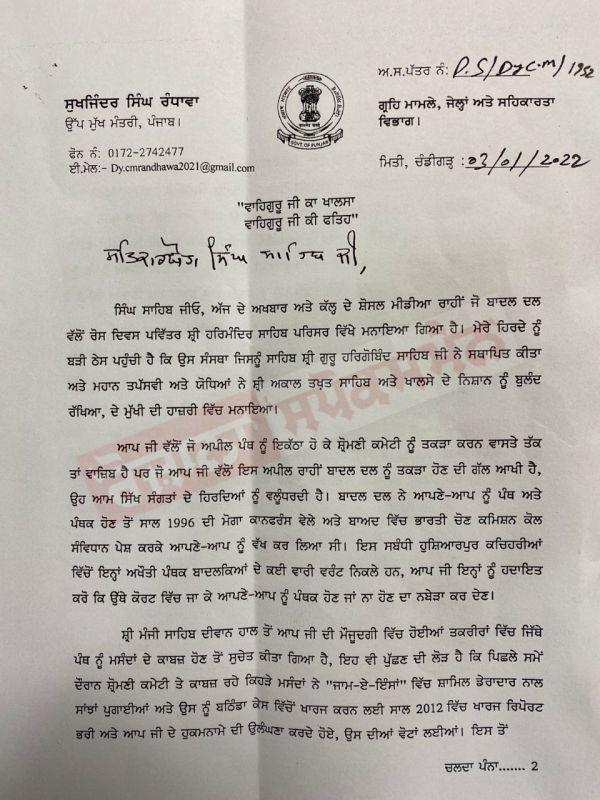 ਅ.ਸ.ਪੱਤਰ ਨੰ: D.S/Dy C.M/1952
ਸੁਖਜਿੰਦਰ ਸਿੰਘ ਰੰਧਾਵਾ
ਉੱਪ ਮੁੱਖ ਮੰਤਰੀ, ਪੰਜਾਬ।
ਗ੍ਰਹਿ ਮਾਮਲੇ, ਜੇਲ੍ਹਾਂ ਅਤੇ ਸਹਿਕਾਰਤਾ
ਵਿਭਾਗ।
GOVT. OF PUNJAB
ਫੋਨ ਨੰ: 0172-2742477
ਈ.ਮੇਲ:- Dy.cmrandhawa2021@gmail.com
ਮਿਤੀ, ਚੰਡੀਗੜ੍ਹ : 03/01/2022
"ਵਾਹਿਗੁਰੂ ਜੀ ਕਾ ਖਾਲਸਾ
ਵਾਹਿਗੁਰੂ ਜੀ ਕੀ ਫਤਿਹ"
ਸਤਿਕਾਰਯੋਗ ਸਿੰਘ ਸਾਹਿਬ ਜੀ,
ਸਿੰਘ ਸਾਹਿਬ ਜੀਓ, ਅੱਜ ਦੇ ਅਖਬਾਰ ਅਤੇ ਕੱਲ੍ਹ ਦੇ ਸ਼ੋਸਲ ਮੀਡੀਆ ਰਾਹੀਂ ਜੋ ਬਾਦਲ ਦਲ
ਵੱਲੋਂ ਰੋਸ ਦਿਵਸ ਪਵਿੱਤਰ ਸ਼੍ਰੀ ਹਰਿਮੰਦਿਰ ਸਾਹਿਬ ਪਰਿਸਰ ਵਿੱਖੇ ਮਨਾਇਆ ਗਿਆ ਹੈ। ਮੇਰੇ ਹਿਰਦੇ ਨੂੰ
ਬੜੀ ਠੇਸ ਪਹੁੰਚੀ ਹੈ ਕਿ ਉਸ ਸੰਸਥਾ ਜਿਸਨੂੰ ਸਾਹਿਬ ਸ਼੍ਰੀ ਗੁਰੂ ਹਰਿਗੋਬਿੰਦ ਸਾਹਿਬ ਜੀ ਨੇ ਸਥਾਪਿਤ ਕੀਤਾ
ਅਤੇ ਮਹਾਨ ਤਪੱਸਵੀ ਅਤੇ ਯੋਧਿਆਂ ਨੇ ਸ਼੍ਰੀ ਅਕਾਲ ਤਖ਼ਤ ਸਾਹਿਬ ਅਤੇ ਖਾਲਸੇ ਦੇ ਨਿਸ਼ਾਨ ਨੂੰ ਬੁਲੰਦ
ਰੱਖਿਆ, ਦੇ ਮੁੱਖੀ ਦੀ ਹਾਜ਼ਰੀ ਵਿੱਚ ਮਨਾਇਆ।
ਆਪ ਜੀ ਵੱਲੋਂ ਜੋ ਅਪੀਲ ਪੰਥ ਨੂੰ ਇਕੱਠਾ ਹੋ ਕੇ ਸ਼੍ਰੋਮਣੀ ਕਮੇਟੀ ਨੂੰ ਤਕੜਾ ਕਰਨ ਵਾਸਤੇ ਤੱਕ
ਤਾਂ ਵਾਜ਼ਿਬ ਹੈ ਪਰ ਜੋ ਆਪ ਜੀ ਵੱਲੋਂ ਇਸ ਅਪੀਲ ਰਾਹੀਂ ਬਾਦਲ ਦਲ ਨੂੰ ਤਕੜਾ ਹੋਣ ਦੀ ਗੱਲ ਆਖੀ ਹੈ,
ਉਹ ਆਮ ਸਿੱਖ ਸੰਗਤਾਂ ਦੇ ਹਿਰਦਿਆਂ ਨੂੰ ਵਲੂੰਧਰਦੀ ਹੈ। ਬਾਦਲ ਦਲ ਨੇ ਆਪਣੇ-ਆਪ ਨੂੰ ਪੰਥ ਅਤੇ
ਪੰਥਕ ਹੋਣ ਤੋਂ ਸਾਲ 1996 ਦੀ ਮੋਗਾ ਕਾਨਫਰੰਸ ਵੇਲੇ ਅਤੇ ਬਾਅਦ ਵਿੱਚ ਭਾਰਤੀ ਚੋਣ ਕਮਿਸ਼ਨ ਕੋਲ
ਸੰਵਿਧਾਨ ਪੇਸ਼ ਕਰਕੇ ਆਪਣੇ-ਆਪ ਨੂੰ ਵੱਖ ਕਰ ਲਿਆ ਸੀ। ਇਸ ਸਬੰਧੀ ਹੁਸ਼ਿਆਰਪੁਰ ਕਚਿਹਰੀਆਂ
ਵਿੱਚੋਂ ਇਨ੍ਹਾਂ ਅਖੌਤੀ ਪੰਥਕ ਬਾਦਲਕਿਆਂ ਦੇ ਕਈ ਵਾਰੀ ਵਰੰਟ ਨਿਕਲੇ ਹਨ, ਆਪ ਜੀ ਇਨ੍ਹਾਂ ਨੂੰ ਹਦਾਇਤ
ਕਰੋ ਕਿ ਉੱਥੇ ਕੋਰਟ ਵਿੱਚ ਜਾ ਕੇ ਆਪਣੇ-ਆਪ ਨੂੰ ਪੰਥਕ ਹੋਣ ਜਾਂ ਨਾ ਹੋਣ ਦਾ ਨਬੇੜਾ ਕਰ ਦੇਣ।
ਸ਼੍ਰੀ ਮੰਜੀ ਸਾਹਿਬ ਦੀਵਾਨ ਹਾਲ ਤੋਂ ਆਪ ਜੀ ਦੀ ਮੌਜੂਦਗੀ ਵਿੱਚ ਹੋਈਆਂ ਤਕਰੀਰਾਂ ਵਿੱਚ ਜਿੱਥੇ
ਪੰਥ ਨੂੰ ਮਸੰਦਾਂ ਦੇ ਕਾਬਜ਼ ਹੋਣ ਤੋਂ ਸੁਚੇਤ ਕੀਤਾ ਗਿਆ ਹੈ, ਇਹ ਵੀ ਪੁੱਛਣ ਦੀ ਲੋੜ ਹੈ ਕਿ ਪਿਛਲੇ ਸਮੇਂ
ਦੌਰਾਨ ਸ਼੍ਰੋਮਣੀ ਕਮੇਟੀ ਤੇ ਕਾਬਜ਼ ਰਹੇ ਕਿਹੜੇ ਮਸੰਦਾਂ ਨੇ "ਜਾਮ-ਏ-ਇੰਸਾਂ" ਵਿੱਚ ਸ਼ਾਮਿਲ ਡੇਰਾਦਾਰ ਨਾਲ
ਸਾਂਝਾਂ ਪੁਗਾਈਆਂ ਅਤੇ ਉਸ ਨੂੰ ਬਠਿੰਡਾ ਕੇਸ ਵਿੱਚੋਂ ਖਾਰਜ ਕਰਨ ਲਈ ਸਾਲ 2012 ਵਿੱਚ ਖਾਰਜ ਰਿਪੋਰਟ
ਭਰੀ ਅਤੇ ਆਪ ਜੀ ਦੇ ਹੁਕਮਨਾਮੇ ਦੀ ਉਲੰਘਣਾ ਕਰਦੇ ਹੋਏ, ਉਸ ਦੀਆਂ ਵੋਟਾਂ ਲਈਆਂ। ਇਸ ਤੋਂ
ਚਲਦਾ ਪੰਨਾ....... 2